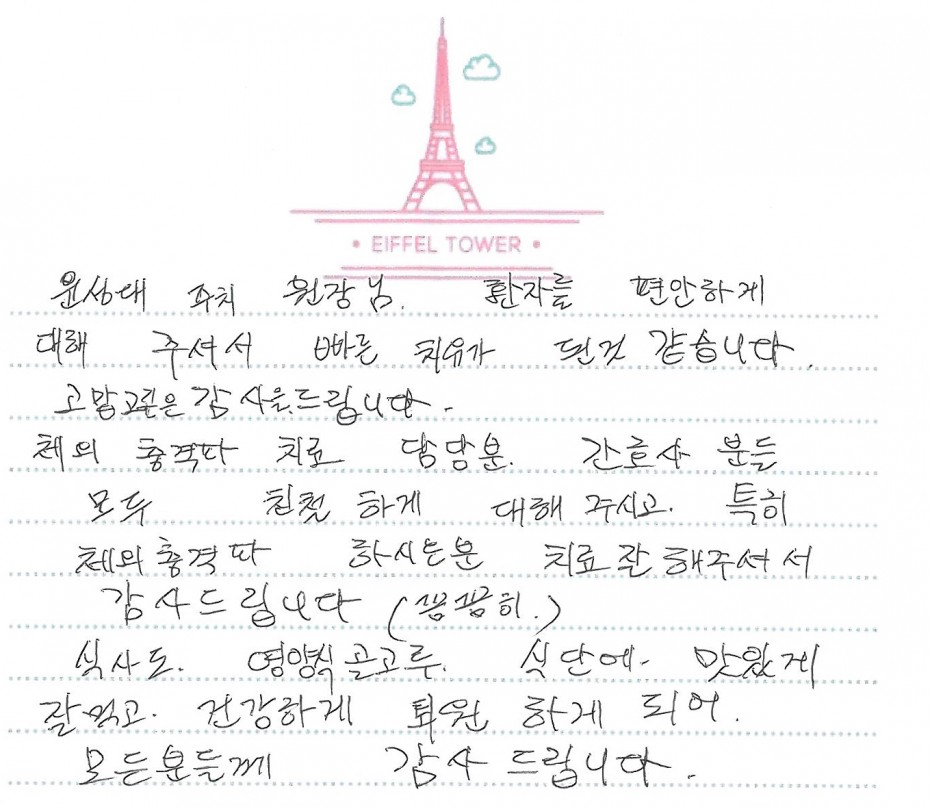 • EIFFEL TOWER •
윤상대 주치 원장님. 환자를 편안하게
대해 주셔서 빠른 치유가 된것 같습니다.
고맙고 깊은 감사을 드립니다.
체외 충격파 치료 담당분. 간호사 분들
모두 친절 하게 대해 주시고. 특히
체외충격파 하시는분 치료 잘 해주셔서
감사드립니다 (꼼꼼히.)
식사도. 영양식 골고루. 식단에. 맛있게
잘먹고. 건강하게 퇴원 하게 되어.
모든분들께 감사 드립니다.